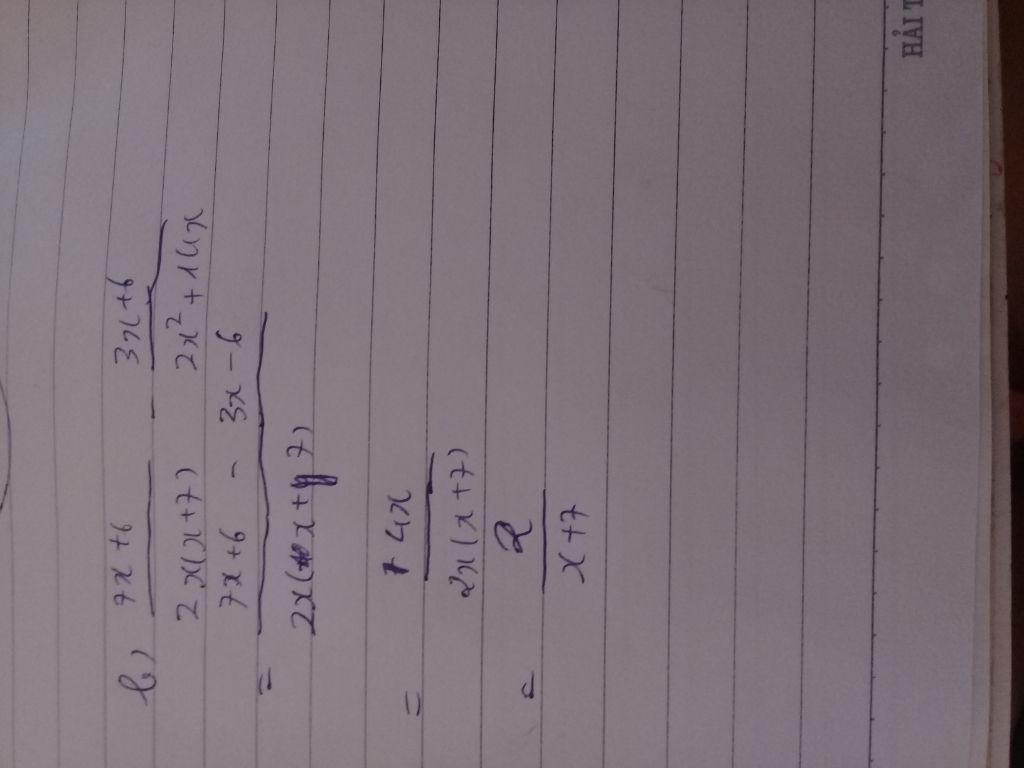 b) 7x+6 / 2x(x+7) - 3x+6 / 2x²+14x
= 7x+6 - 3x-6 / 2x(x+7)
= 4x / 2x(x+7)
= 2 / x+7
HẢI T